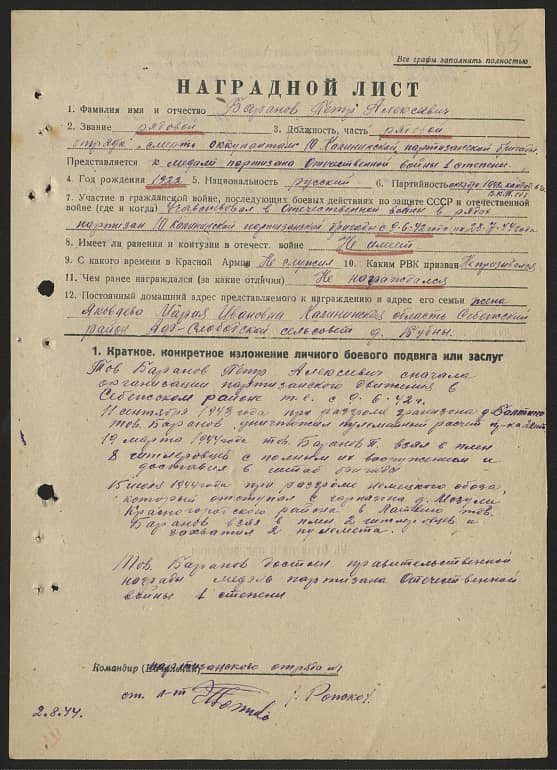 165
Все графы заполнять полностью
НАГРАДНОЙ ЛИСТ
1. Фамилия имя и отчество Баранов Петр Алексеевич
2. Звание рядовой 3. Должность, часть рядовой
отряда "смерть оккупантам" III Калининской партизанской бригады
Представляется к медали партизана Отечественной войне 1 степени.
4. Год рождения 1923 5. Национальность русский 6. Партийность
7. Участие в гражданской войне, последующих боевых действиях по защите СССР и отечественной
войне (где и когда) Участвовал в Отечественной войны в рядах
партизан III Калининской партизанской бригады с 9-6-42 года по 23-7-44 года
8. Имеет ли ранения и контузии в отечест. войне Не имеет
9. С какого времени в Красной Армии Не служил 10. Каким РВК призван Не призывался
11. Чем ранее награждался (за какие отличия) Не награждался
12. Постоянный домашний адрес представляемого к награждению и адрес его семьи жена
Яковлева Мария Ивановна Калининская область Себежский
район Слободской сельсовет д.
1. Краткое, конкретное изложение личного боевого подвига или заслуг
Тов Баранов Петр Алексеевич сначала
организации партизанского движения в
Себежском районе т.е. с 9.6.42г.
11 сентября 1943 года при разгроме гранизона д.
тов. Баранов уничтожил пулеметный расчет
19 марта 1944 года тов. Баранов П. взял в плен
8 гитлеровцев с полным их вооружением и
доставил в штаб бригады
15 июля 1944 года при разгроме немецкого обоза,
который отступал с гарнизона д. Мозули
Красногородского района в Латвию тов.
Баранов взял в плен 2 гитлеровцев и
захватил 2 пулемета.
Тов. Баранов достоин правительственной
награды медаль партизана Отечественной
войны 1 степени
Командир партизанского отряда №1
ст. л-т
2.8.44.